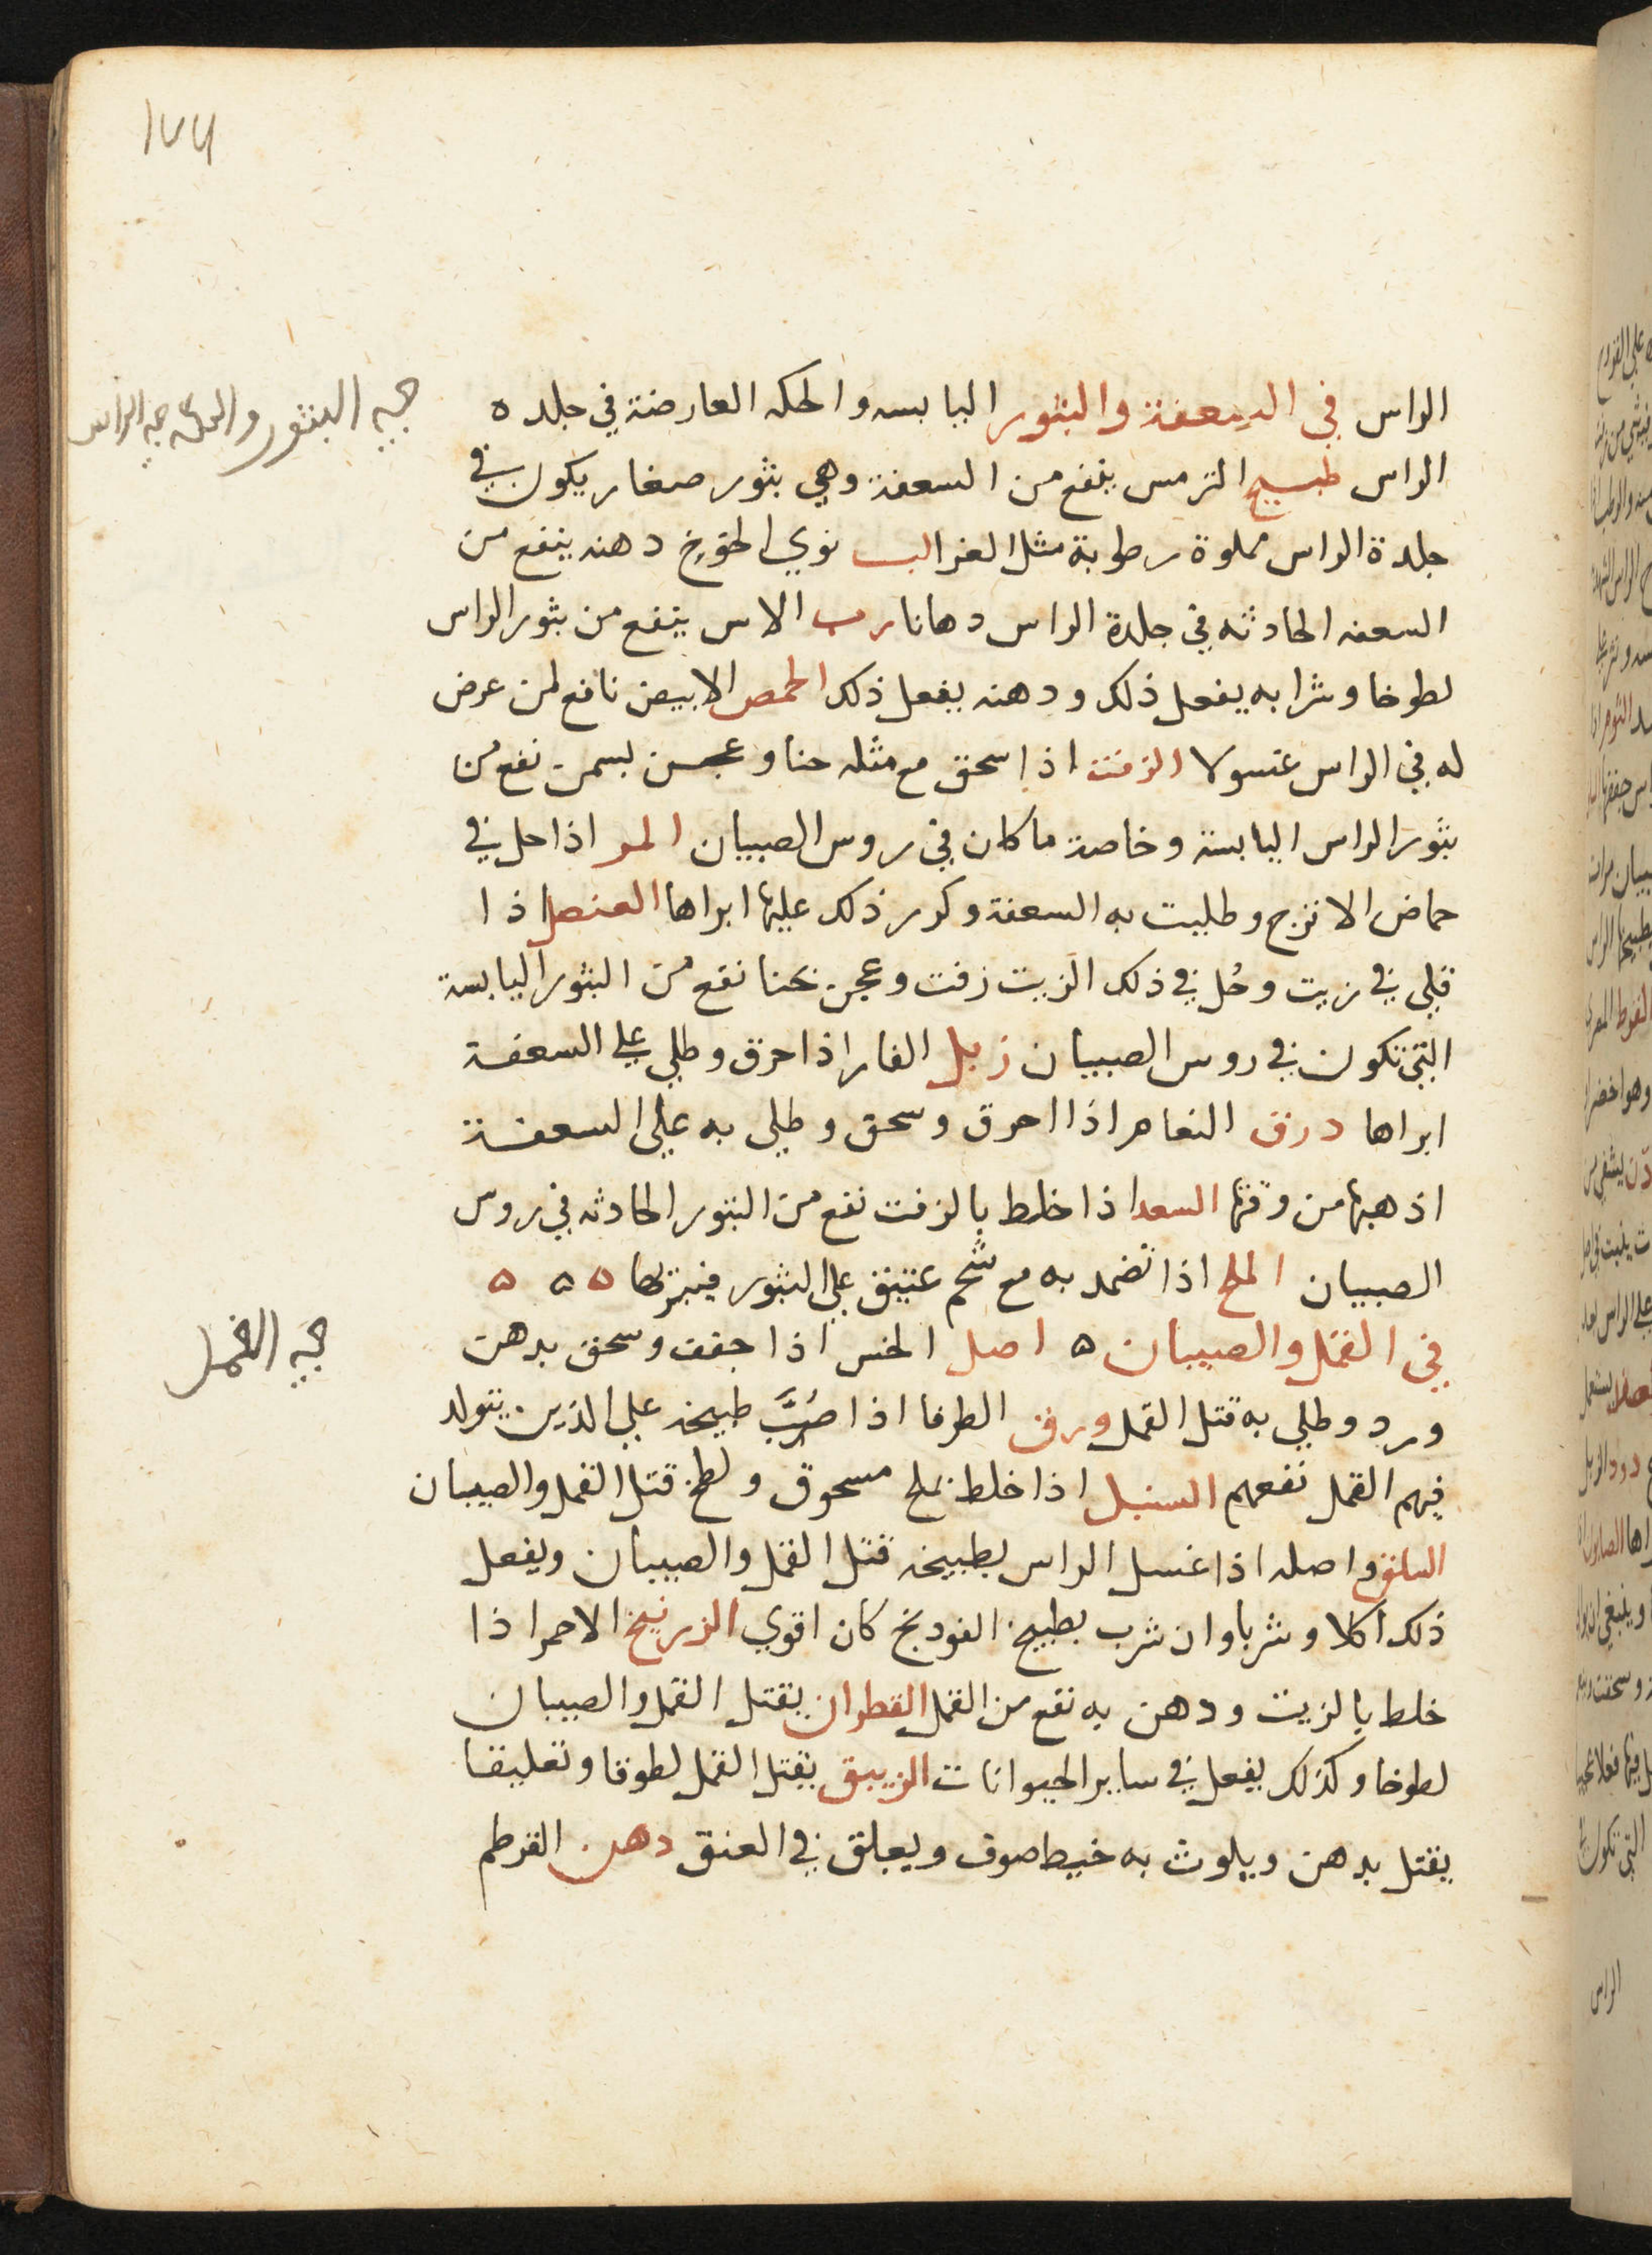 ١٧٦
الراس في السعفة والبثور اليابسه والحكه العارضة في جلده
الراس طبيخ الترمس ينفع من السعفة وهي بثور صغار يكون في
جلدة الراس مملوة رطوبة مثل الغرا لب نوي الخوخ دهنه ينفع من
السعفه الحادثه في جلدة الراس دهانا رب الاس ينفع من بثور الراس
لطوخا وشرابه يفعل ذلك ودهنه يفعل ذلك الحمص الابيض نافع لمن عرض
له في الراس غسولا الزفت اذا سحق مع مثله حنا وعجن بسمن نفع من
بثور الراس اليابسة وخاصة ما كان في روس الصبيان المر اذا حل في
حماض الاترج وطليت به السعفة وكرر ذلك عليها ابراها العنصل اذا
قلي في زيت وحُل في ذلك الزيت زفت وعجن بحنا نفع من البثور اليابسة
التي تكون في روس الصبيان زبل الفار اذا حرق وطلي علي السعفة
ابراها درق النعام اذا احرق وسحق وطلي به علي السعفة
اذهبها من وقتها السعد اذا خلط بالزفت نفع من البثور الحادثه في روس
الصبيان الملح اذا تضمد به مع شحم عتيق علي البثور فيبريها ه ه ه
في القمل والصيبان ه اصل الخس اذا جفف وسحق بدهن
ورد وطلي به قتل القمل ورق الطرفا اذا صُبَّ طبيخه علي الذين يتولد
فيهم القمل نفعهم السنبل اذا خلط بملح مسحوق ولطخ قتل القمل والصيبان
السلق واصله اذا غسل الراس بطبيخه قتل القمل والصيبان ويفعل
ذلك اكلا وشربا وان شرب بطبيخ الفودنج كان اقوي الزرنيخ الاحمر اذا
خلط بالزيت ودهن به نفع من القمل القطران يقتل القمل والصيبان
لطوخا وكذلك يفعل في ساير الحيوانات الزيبق يقتل القمل لطوقا وتعليقا
يقتل بدهن ويلوث به خيط صوف ويعلق في العنق دهن القرطم
في البثور والحكة في الراس
في القمل